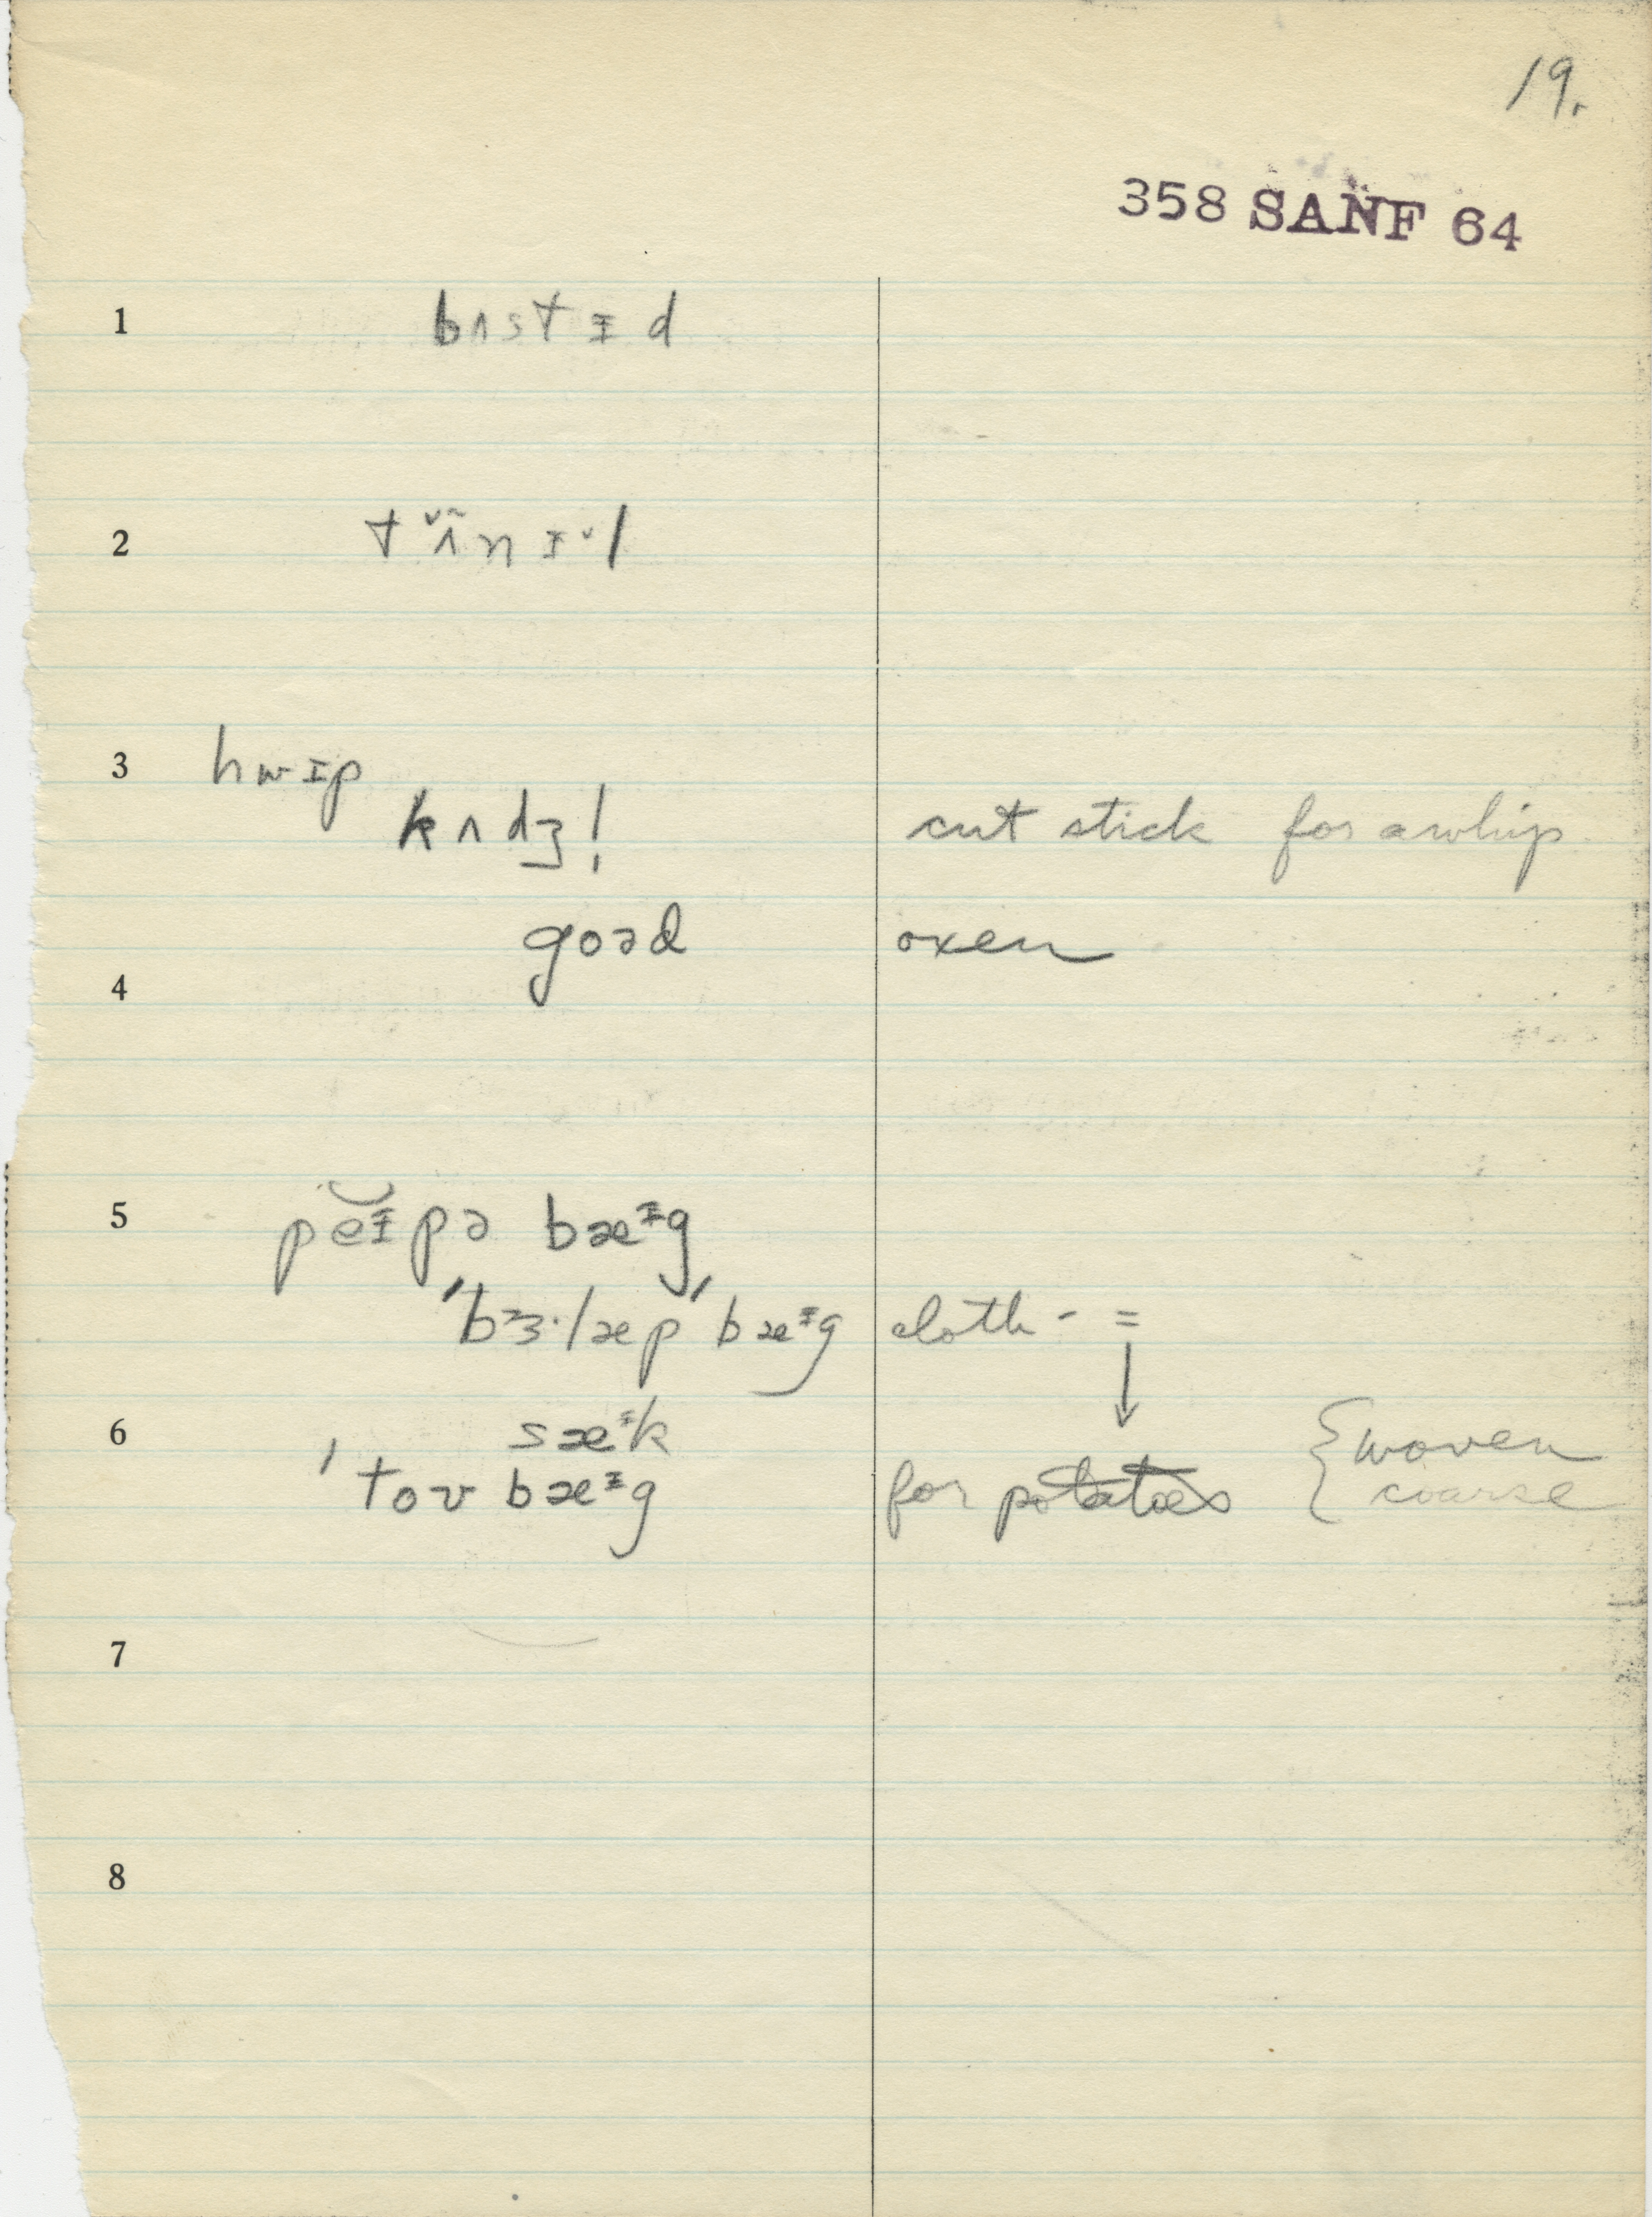 19.
358 SANF 64
1 bʌstɪd
2 tʌ̃nɪˇl
3 hwɪp
kʌdʒ! cut stick for a whip
goəd oxen
4
5 pĕɪpə bæᶦg
'bɜ·læp' bæᶦg cloth - =
↓
6 sæᶦk { woven
'tov bæᶦg for potatoes coarse
7
8